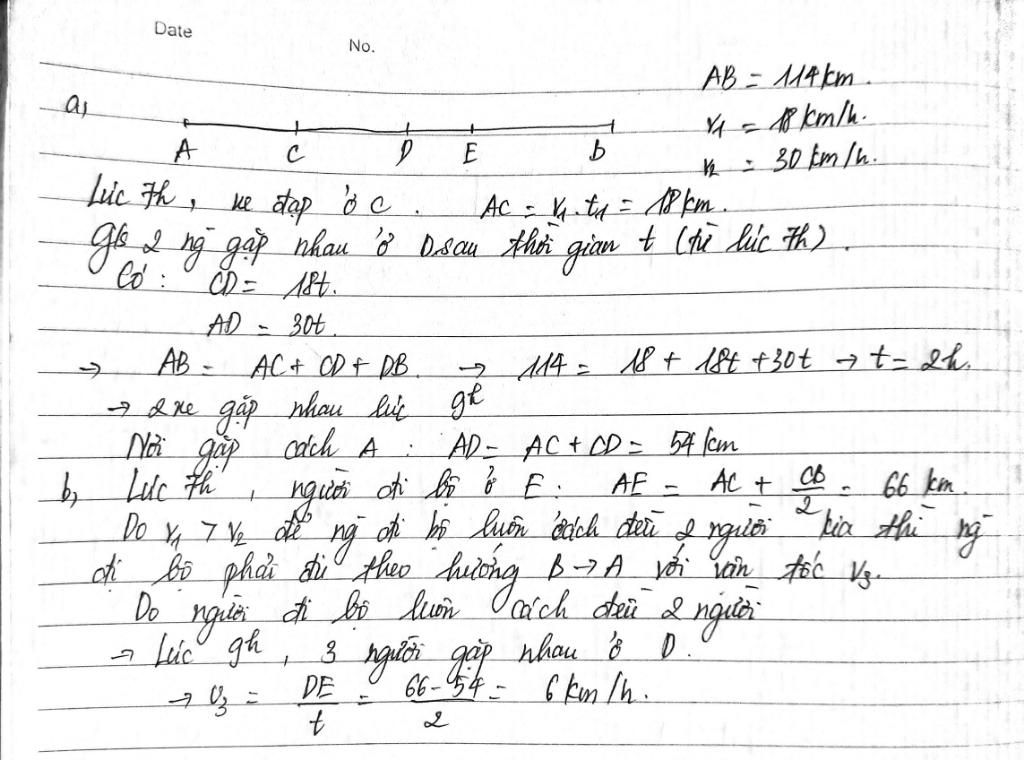 Date
No.
AB = 114 km.
a,
v1 = 18 km/h.
A C D E b
v2 = 30 km/h.
Lúc 7h, xe đạp ở C. AC = v1.t1 = 18 km.
Gs 2 ng gặp nhau ở D sau thời gian t (từ lúc 7h).
Có: CD = 18t.
AD = 30t.
→ AB = AC + CD + DB → 114 = 18 + 18t + 30t → t = 2h.
→ 2 xe gặp nhau lúc 9h
Nơi gặp cách A: AD = AC + CD = 54 km
b, Lúc 7h, người đi bộ ở E: AE = AC + CB/2 = 66 km.
Do v1 > v2 để ng đi bộ luôn cách đều 2 người kia thì ng
đi bộ phải đi theo hướng B → A với vân tốc v3.
Do người đi bộ luôn cách đều 2 người
→ Lúc 9h, 3 người gặp nhau ở D.
→ v3 = DE/t = 66 - 54/2 = 6 km/h.